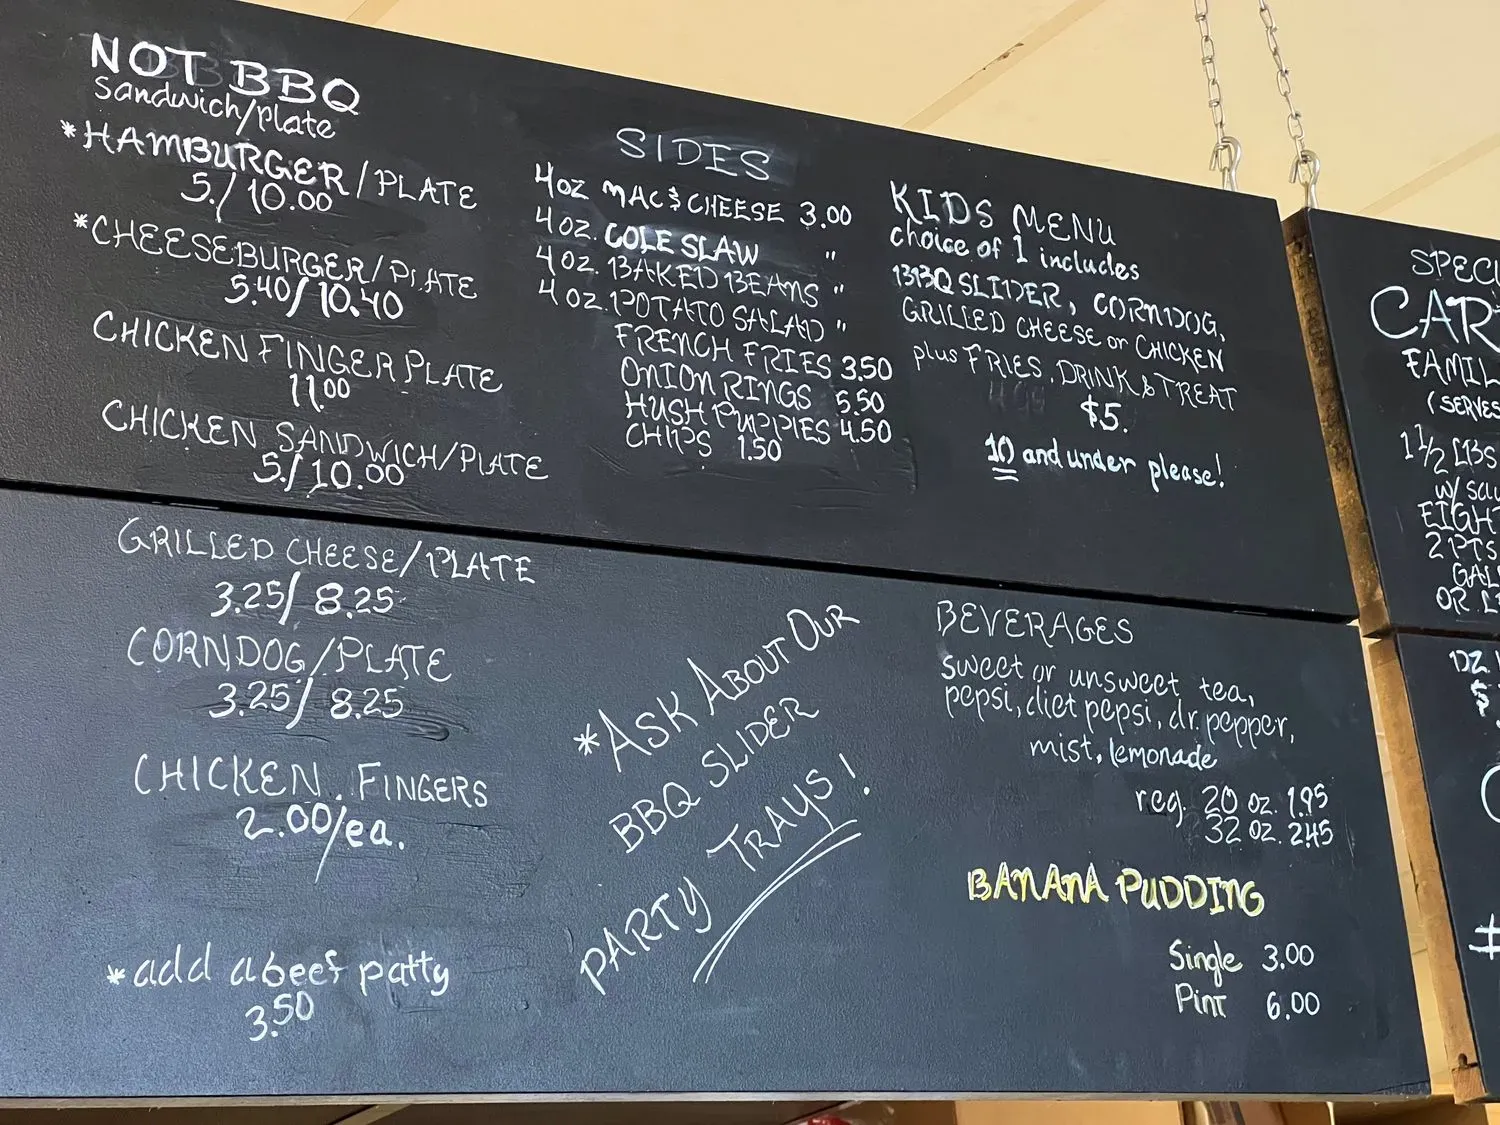 NOT BBQ
Sandwich/plate
*HAMBURGER/PLATE
5./10.00
*CHEESEBURGER/PLATE
5.40/10.40
CHICKEN FINGER PLATE
11.00
CHICKEN SANDWICH/PLATE
5./10.00
GRILLED CHEESE/PLATE
3.25/8.25
CORNDOG/PLATE
3.25/8.25
CHICKEN FINGERS
2.00/ea.
*add a beef patty
3.50
SIDES
4oz MAC & CHEESE 3.00
4oz. COLE SLAW "
4oz. BAKED BEANS "
4oz. POTATO SALAD "
FRENCH FRIES 3.50
ONION RINGS 5.50
HUSH PUPPIES 4.50
CHIPS 1.50
*ASK ABOUT OUR
BBQ SLIDER
PARTY TRAYS!
KIDS MENU
choice of 1 includes
BBQ SLIDER, CORNDOG,
GRILLED CHEESE or CHICKEN
plus FRIES, DRINK & TREAT
$5.
10 and under please!
BEVERAGES
sweet or unsweet tea,
pepsi, diet pepsi, dr. pepper,
mist, lemonade
reg. 20 oz. 1.95
32 oz. 2.45
BANANA PUDDING
Single 3.00
Pint 6.00
SPECI
CAR
FAMIL
(SERVES
1 1/2 LBS
w/ sau
EIGHT
2 PTS
GAL
OR
DZ.
$
#